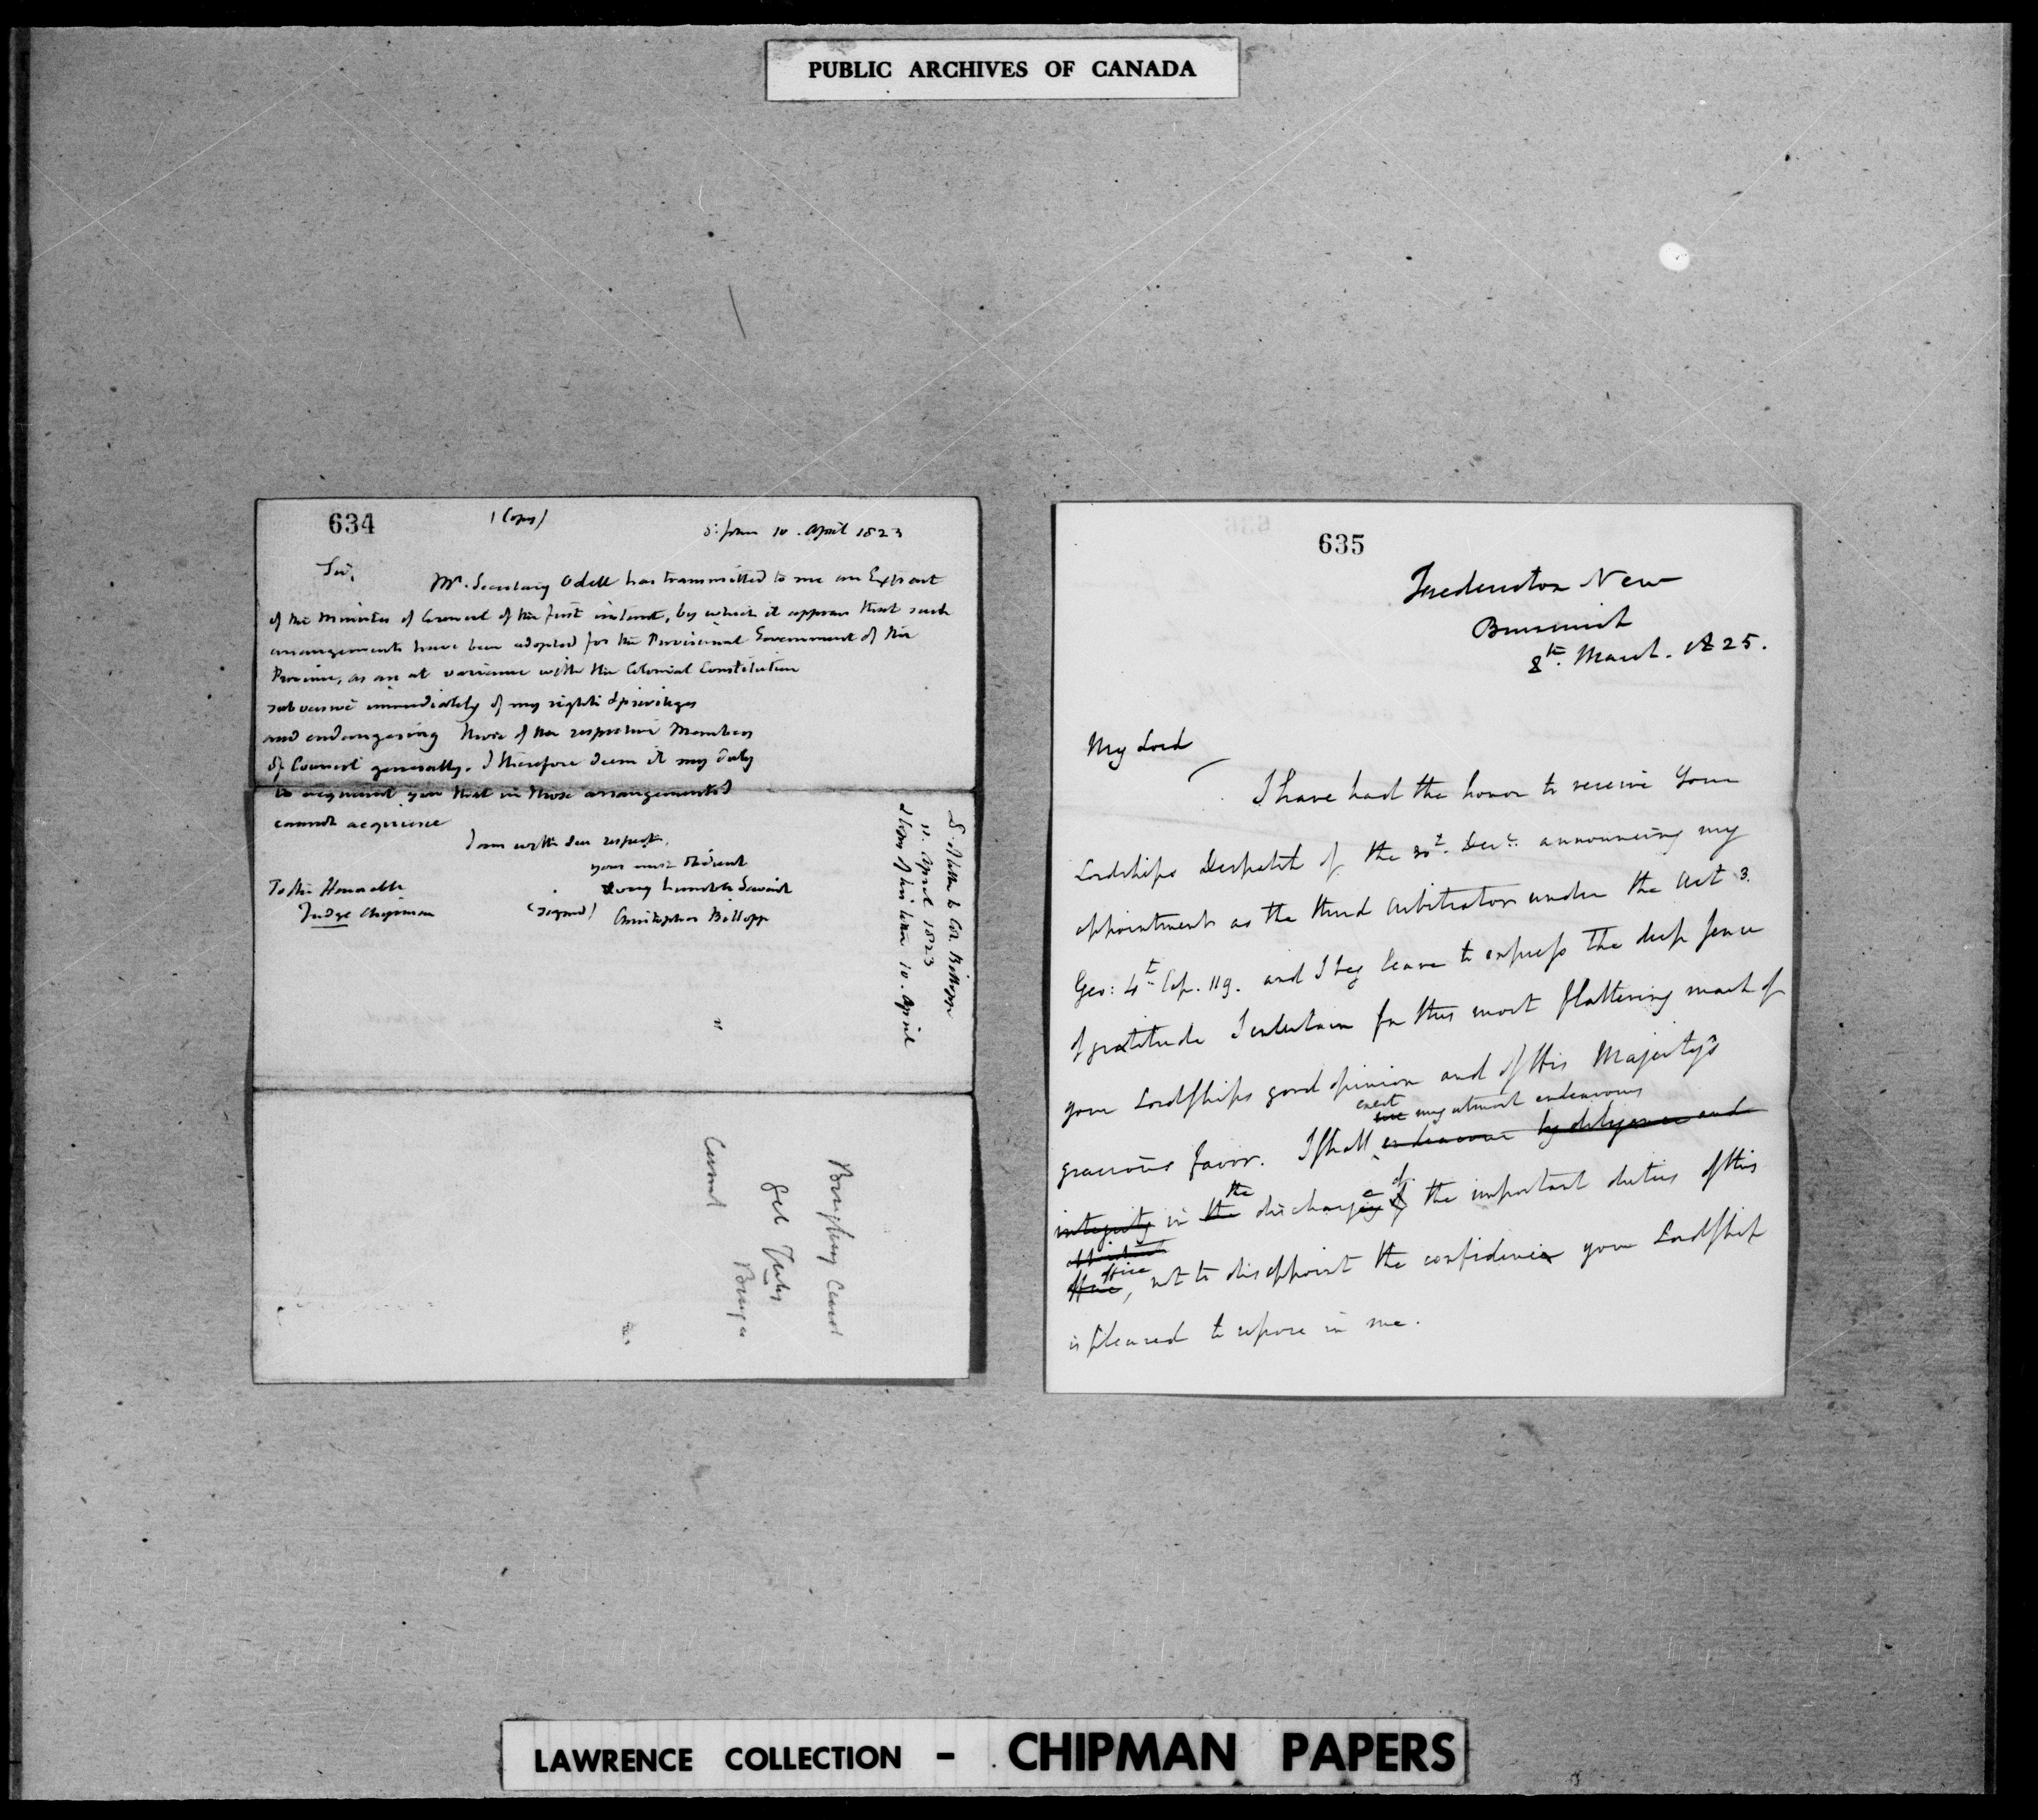 PUBLIC ARCHIVES OF CANADA
634
(Copy)
St John 10. April 1823
Sir,
Mr. Secretary Odell has transmitted to me an Extract
of the Minutes of Council of the first instant, by which it appears that such
arrangements have been adopted for the Provisional Government of the
Province, as are at variance with the Colonial Constitution
subversive immediately of my rights & privileges
and endangering those of the respective Members
of Council generally. I therefore deem it my duty
to acquaint you that in those arrangements I
cannot acquiesce
I am with due respect,
your most obedient
& very humble Servant
(signed) Christopher Billopp
To the Honorable
Judge Chipman
D. of letter to Col. Billopp
11. April 1823
& Copy of his letter 10. April
635
Fredericton New
Brunswick
8th. March. 1825.
My Lord
I have had the honor to receive Your
Lordships Despatch of the 30t. Decr. announcing my
appointment as the third Arbitrator under the Act 3.
Geo: 4t. Cap. 119. and I beg leave to express the deep sense
of gratitude I entertain for this most flattering mark of
your Lordships good opinion and of His Majesty's
exert
use my utmost endeavours
gracious favor. I shall endeavour by diligence and
the
of
integrity in the discharging of the important duties of this
office
office, not to disappoint the confidence your Lordship
is pleased to repose in me.
LAWRENCE COLLECTION - CHIPMAN PAPERS